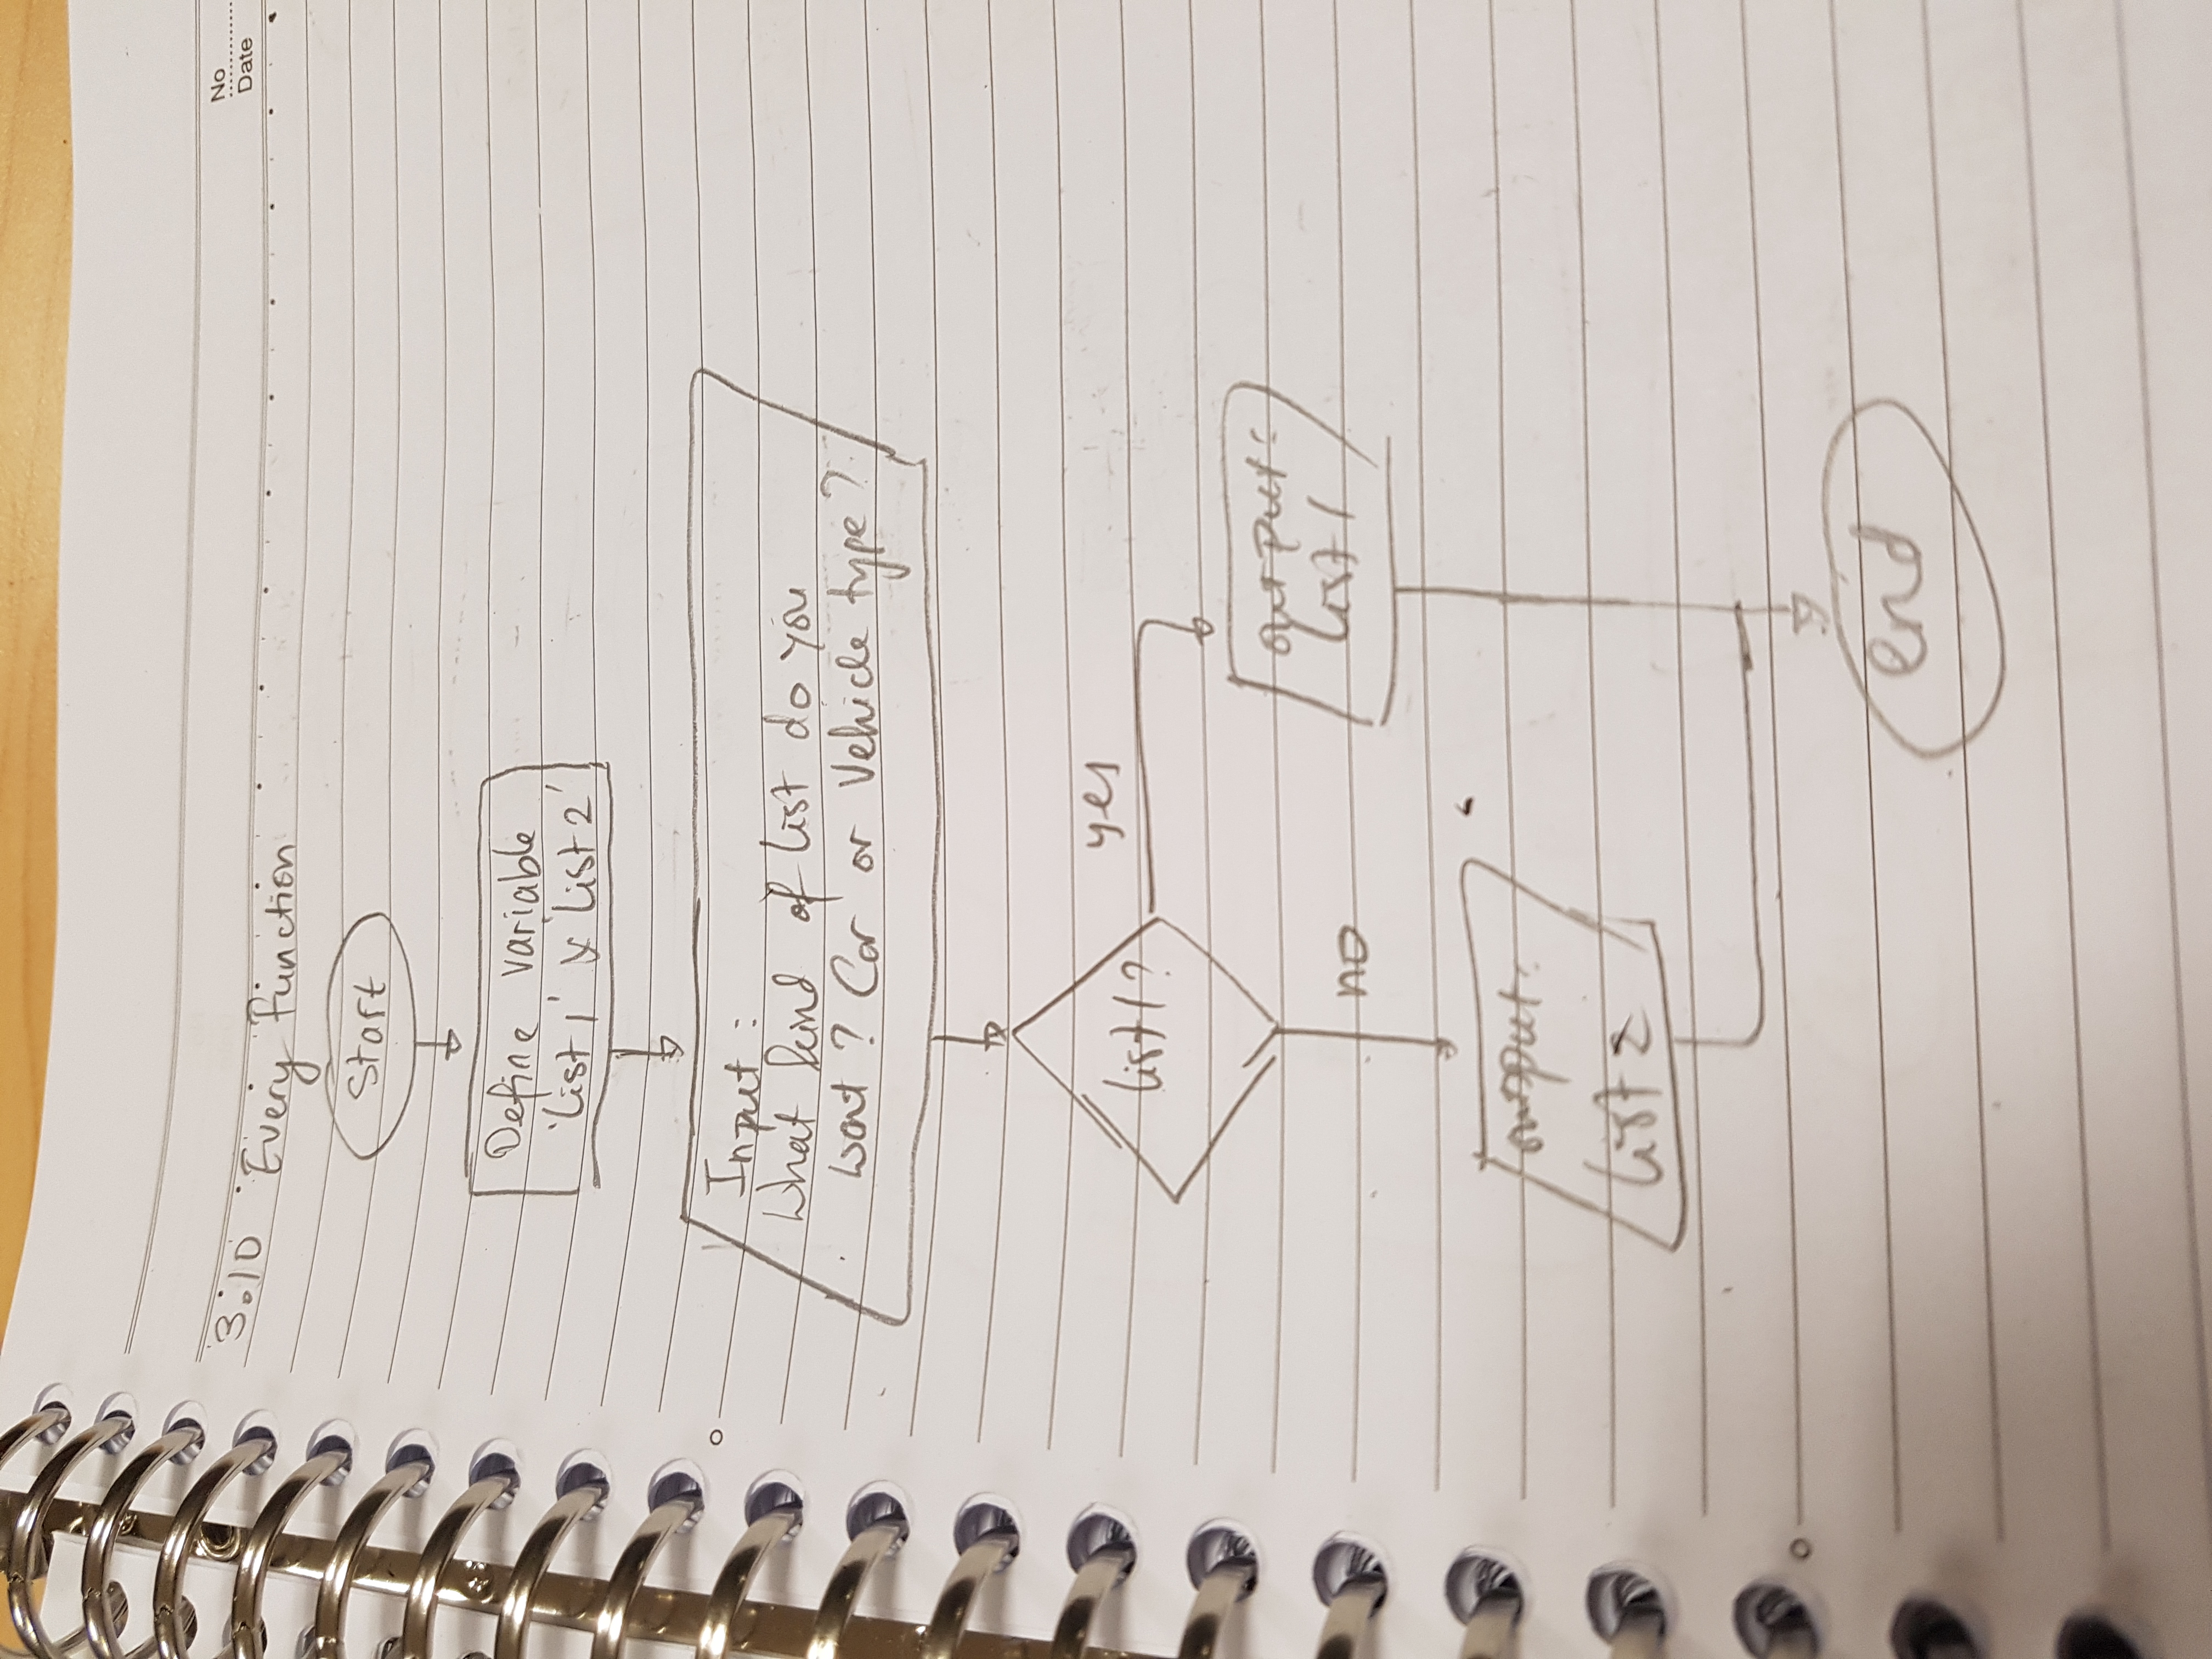 No
Date
3.10 Every Function
Start
Define variable
'list 1' & 'list 2'
Input :
What kind of list do you
want ? Car or Vehicle type ?
list 1 ?
yes
no
output:
list 1
output:
list 2
end